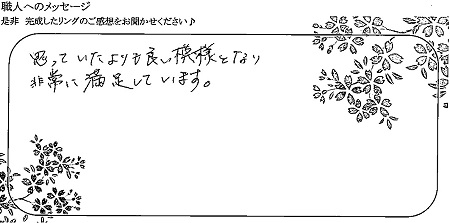 職人へのメッセージ
是非 完成したリングのご感想をお聞かせください♪
思っていたよりも良い模様となり
非常に満足しています。